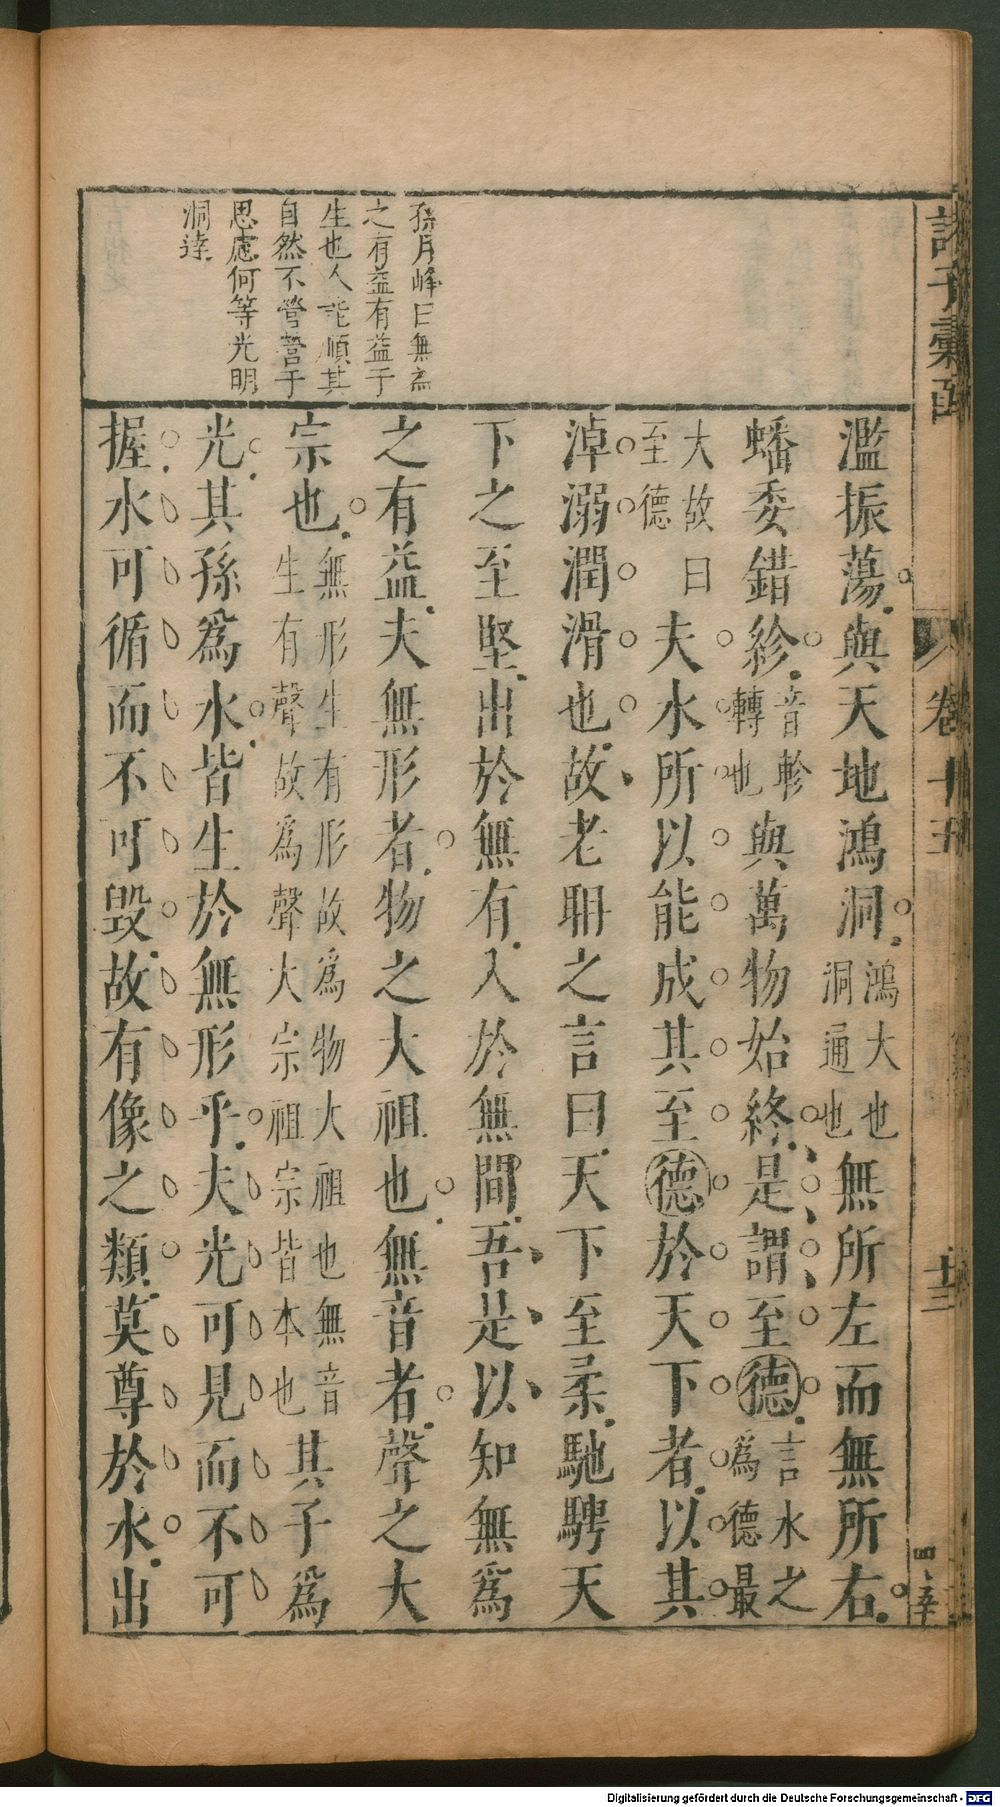 諸子彙函
卷十五
十三
孫月峰曰無爲
之有益有益于
生也人能順其
自然不營營于
思慮何等光明
洞達
濫振蕩與天地鴻洞鴻大也洞通也無所左而無所右
蟠委錯紾音軫轉也與萬物始終是謂至德言水之爲德最
大故曰至德夫水所以能成其至德於天下者以其
淖溺潤滑也故老聃之言曰天下至柔馳騁天
下之至堅出於無有入於無間吾是以知無爲
之有益夫無形者物之大祖也無音者聲之大
宗也無形生有形故爲物大祖也無音生有聲故爲聲大宗祖宗皆本也其子爲
光其孫爲水皆生於無形乎夫光可見而不可
握水可循而不可毀故有像之類莫尊於水出
Digitalisierung gefördert durch die Deutsche Forschungsgemeinschaft - DFG